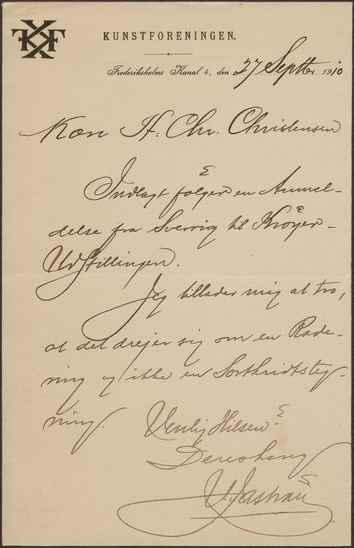 KUNSTFORENINGEN.
Frederiksholms Kanal 4, den 27 Septbr. 1910
H. Chr. Christensen
Indlagt følger en Anmel-
delse fra Sverrig til Krøyer-
Udstillingen.
Jeg tillader mig at tro,
at det drejer sig om en Rade-
ring og ikke en Sortkridtsteg-
ning.
Venlig Hilsen
Deres